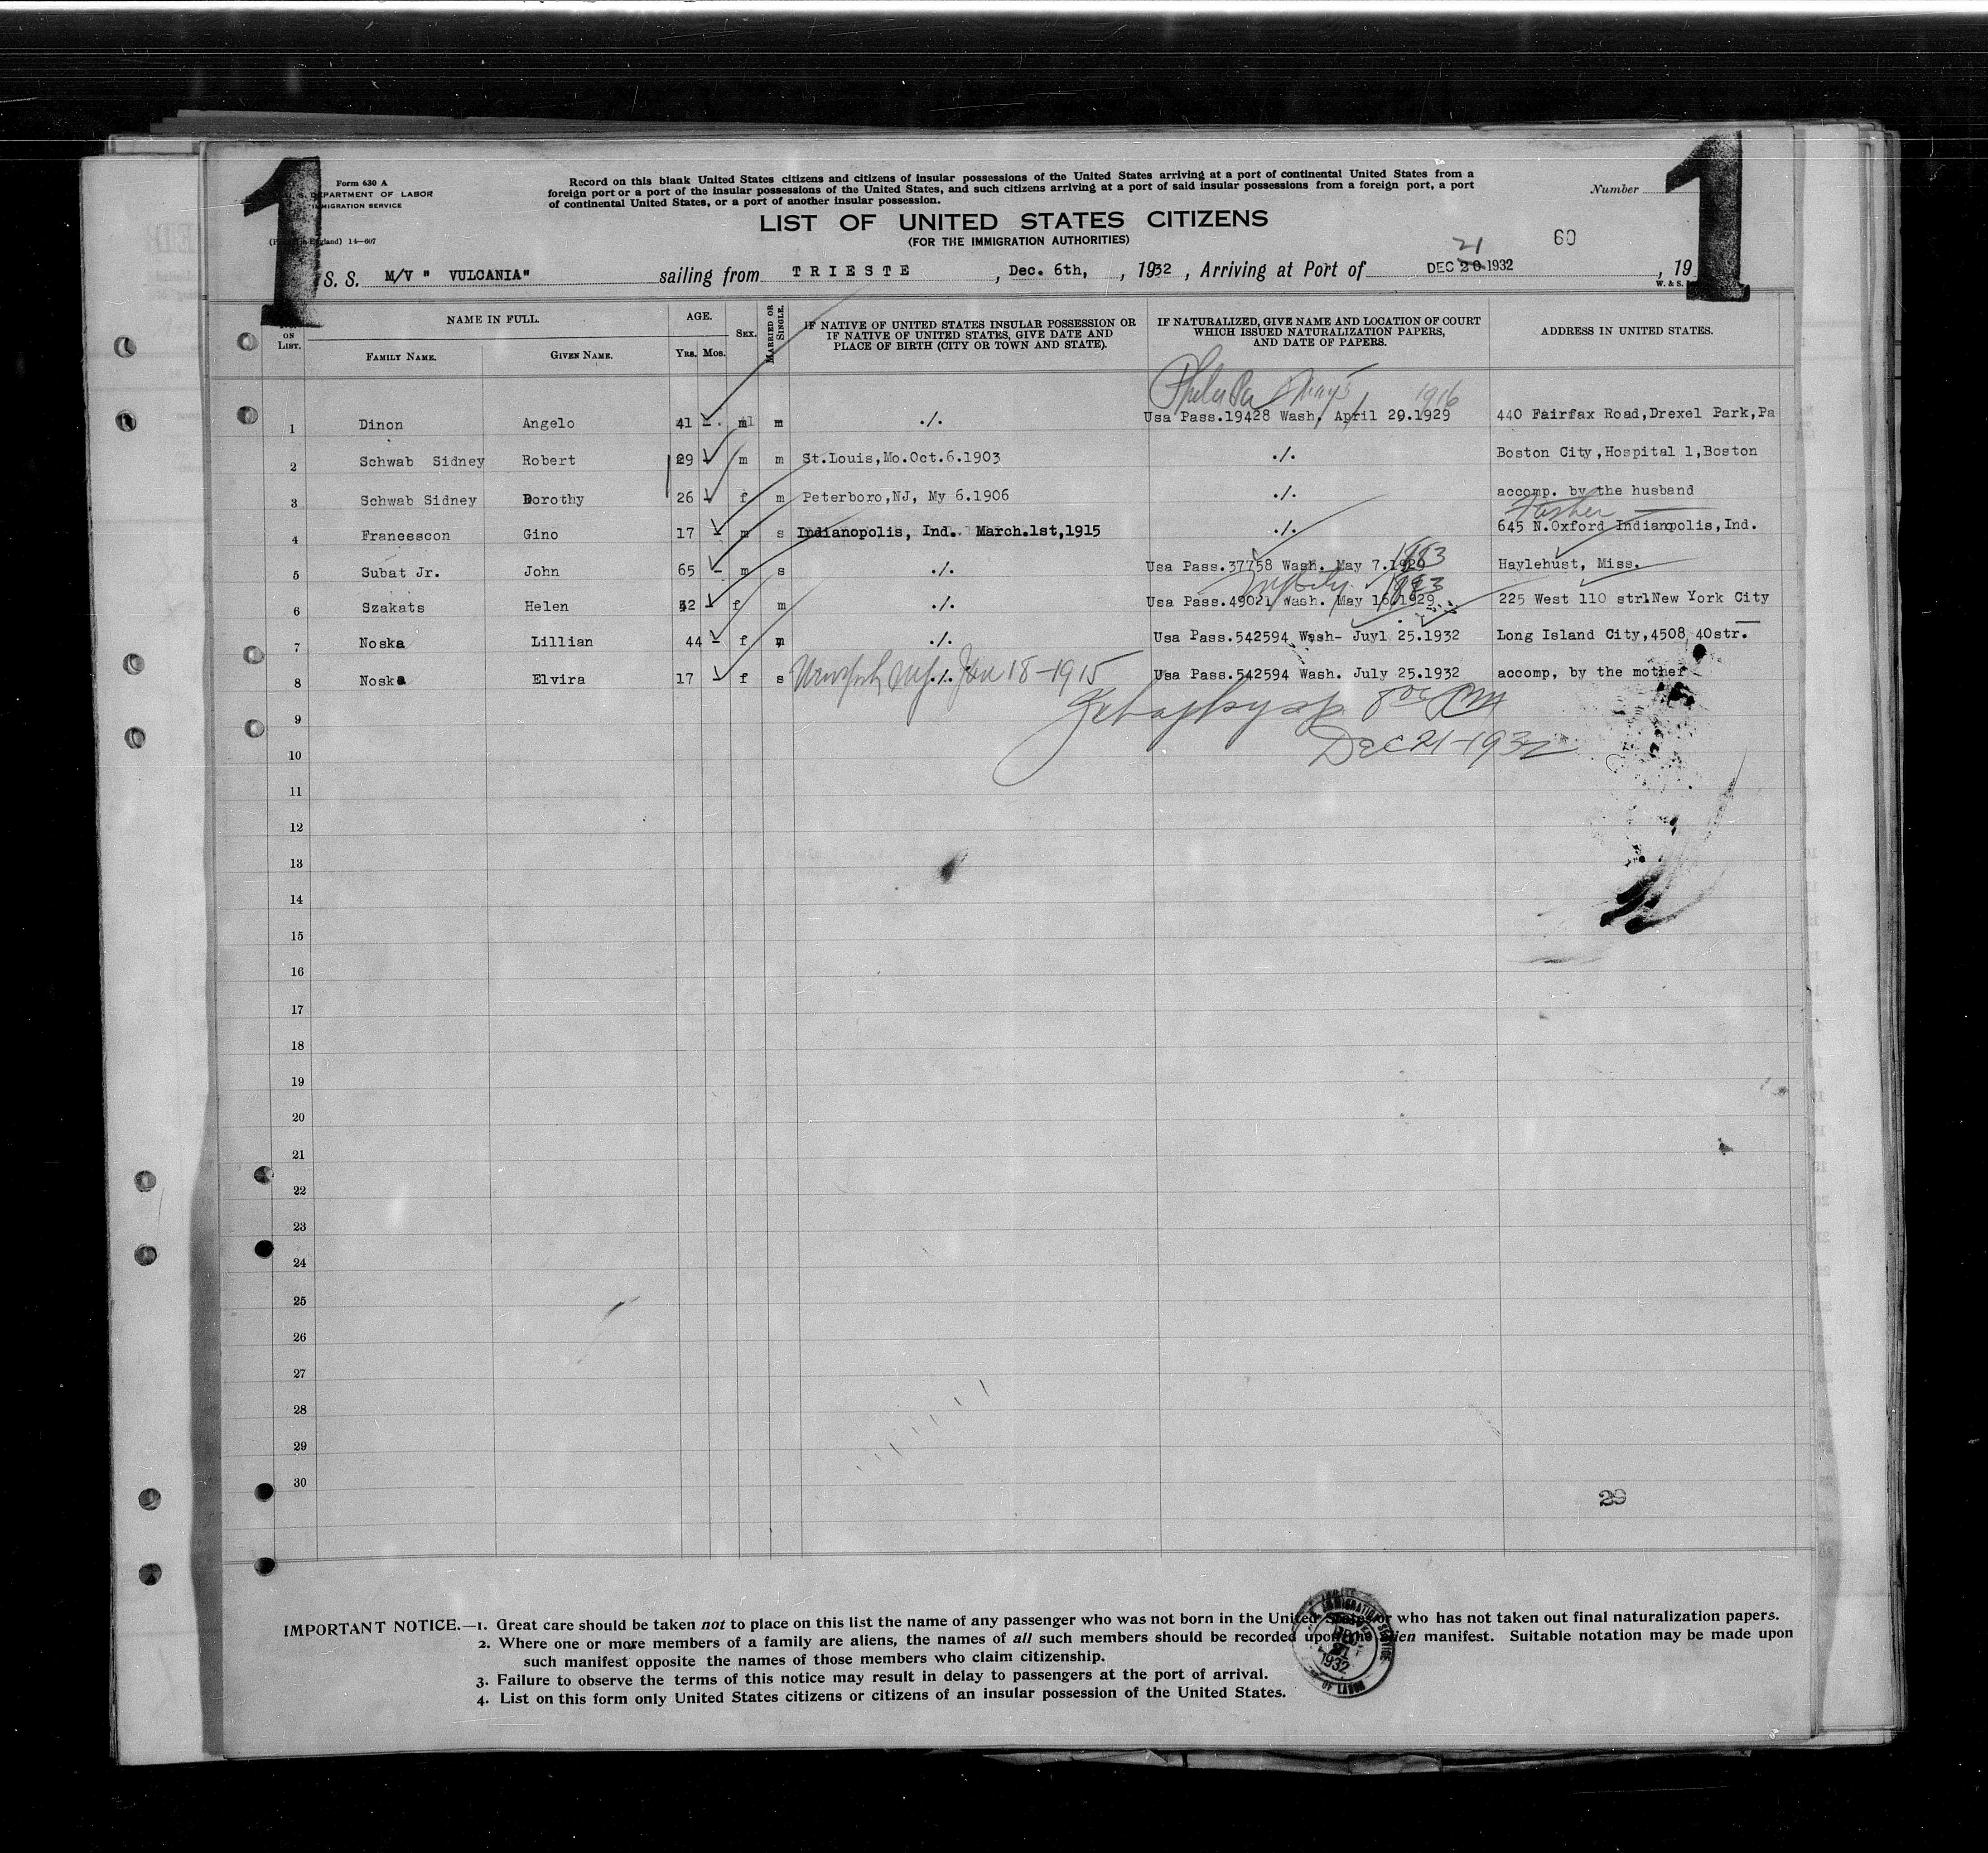 1
1
Form 630 A
DEPARTMENT OF LABOR
IMMIGRATION SERVICE
14—607
Record on this blank United States citizens and citizens of insular possessions of the United States arriving at a port of continental United States from a
foreign port or a port of the insular possessions of the United States, and such citizens arriving at a port of said insular possessions from a foreign port, a port
of continental United States, or a port of another insular possession.
Number
LIST OF UNITED STATES CITIZENS
(FOR THE IMMIGRATION AUTHORITIES)
60
21
S. S. M/V " VULCANIA" sailing from TRIESTE, Dec. 6th, , 1932 , Arriving at Port of DEC 20 1932 , 19
W. & S.
ON LIST.
NAME IN FULL.
FAMILY NAME.
GIVEN NAME.
AGE.
YRS. MOS.
SEX.
MARRIED OR SINGLE.
IF NATIVE OF UNITED STATES INSULAR POSSESSION OR
IF NATIVE OF UNITED STATES, GIVE DATE AND
PLACE OF BIRTH (CITY OR TOWN AND STATE).
IF NATURALIZED, GIVE NAME AND LOCATION OF COURT
WHICH ISSUED NATURALIZATION PAPERS,
AND DATE OF PAPERS.
ADDRESS IN UNITED STATES.
Phila Pa 1916
1 Dinon Angelo 41 -. m m ./. Usa Pass.19428 Wash, April 29.1929 440 Fairfax Road,Drexel Park,Pa
2 Schwab Sidney Robert 29 - m m St.Louis,Mo.Oct.6.1903 ./. Boston City,Hospital 1,Boston
3 Schwab Sidney Dorothy 26 - f m Peterboro,NJ, My 6.1906 ./. accomp. by the husband
Father
4 Franeescon Gino 17 - m s Indianopolis, Ind. March.1st,1915 ./. 645 N.Oxford Indianopolis,Ind.
1883
5 Subat Jr. John 65 - m s ./. Usa Pass.37758 Wash. May 7.1929 Haylehust, Miss.
6 Szakats Helen 52 - f m ./. Usa Pass.49021 Wash. May 16.1929 225 West 110 strlNew York City
7 Noska Lillian 44 - f m ./. Usa Pass.542594 Wash- Juyl 25.1932 Long Island City,4508,40str.
8 Noska Elvira 17 - f s New York NY ./. Jan 18-1915 Usa Pass.542594 Wash. July 25.1932 accomp, by the mother
9
Dec 21-1932
10
11
12
13
14
15
16
17
18
19
20
21
22
23
24
25
26
27
28
29
30
29
IMPORTANT NOTICE.—1. Great care should be taken not to place on this list the name of any passenger who was not born in the United States or who has not taken out final naturalization papers.
2. Where one or more members of a family are aliens, the names of all such members should be recorded upon the alien manifest. Suitable notation may be made upon
such manifest opposite the names of those members who claim citizenship.
3. Failure to observe the terms of this notice may result in delay to passengers at the port of arrival.
4. List on this form only United States citizens or citizens of an insular possession of the United States.
IMMIGRATION SERVICE
DEC
21
1932
OF LABOR